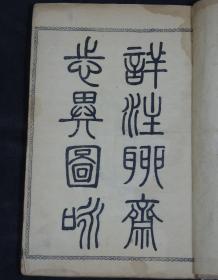 詳註聊齋
志異圖咏